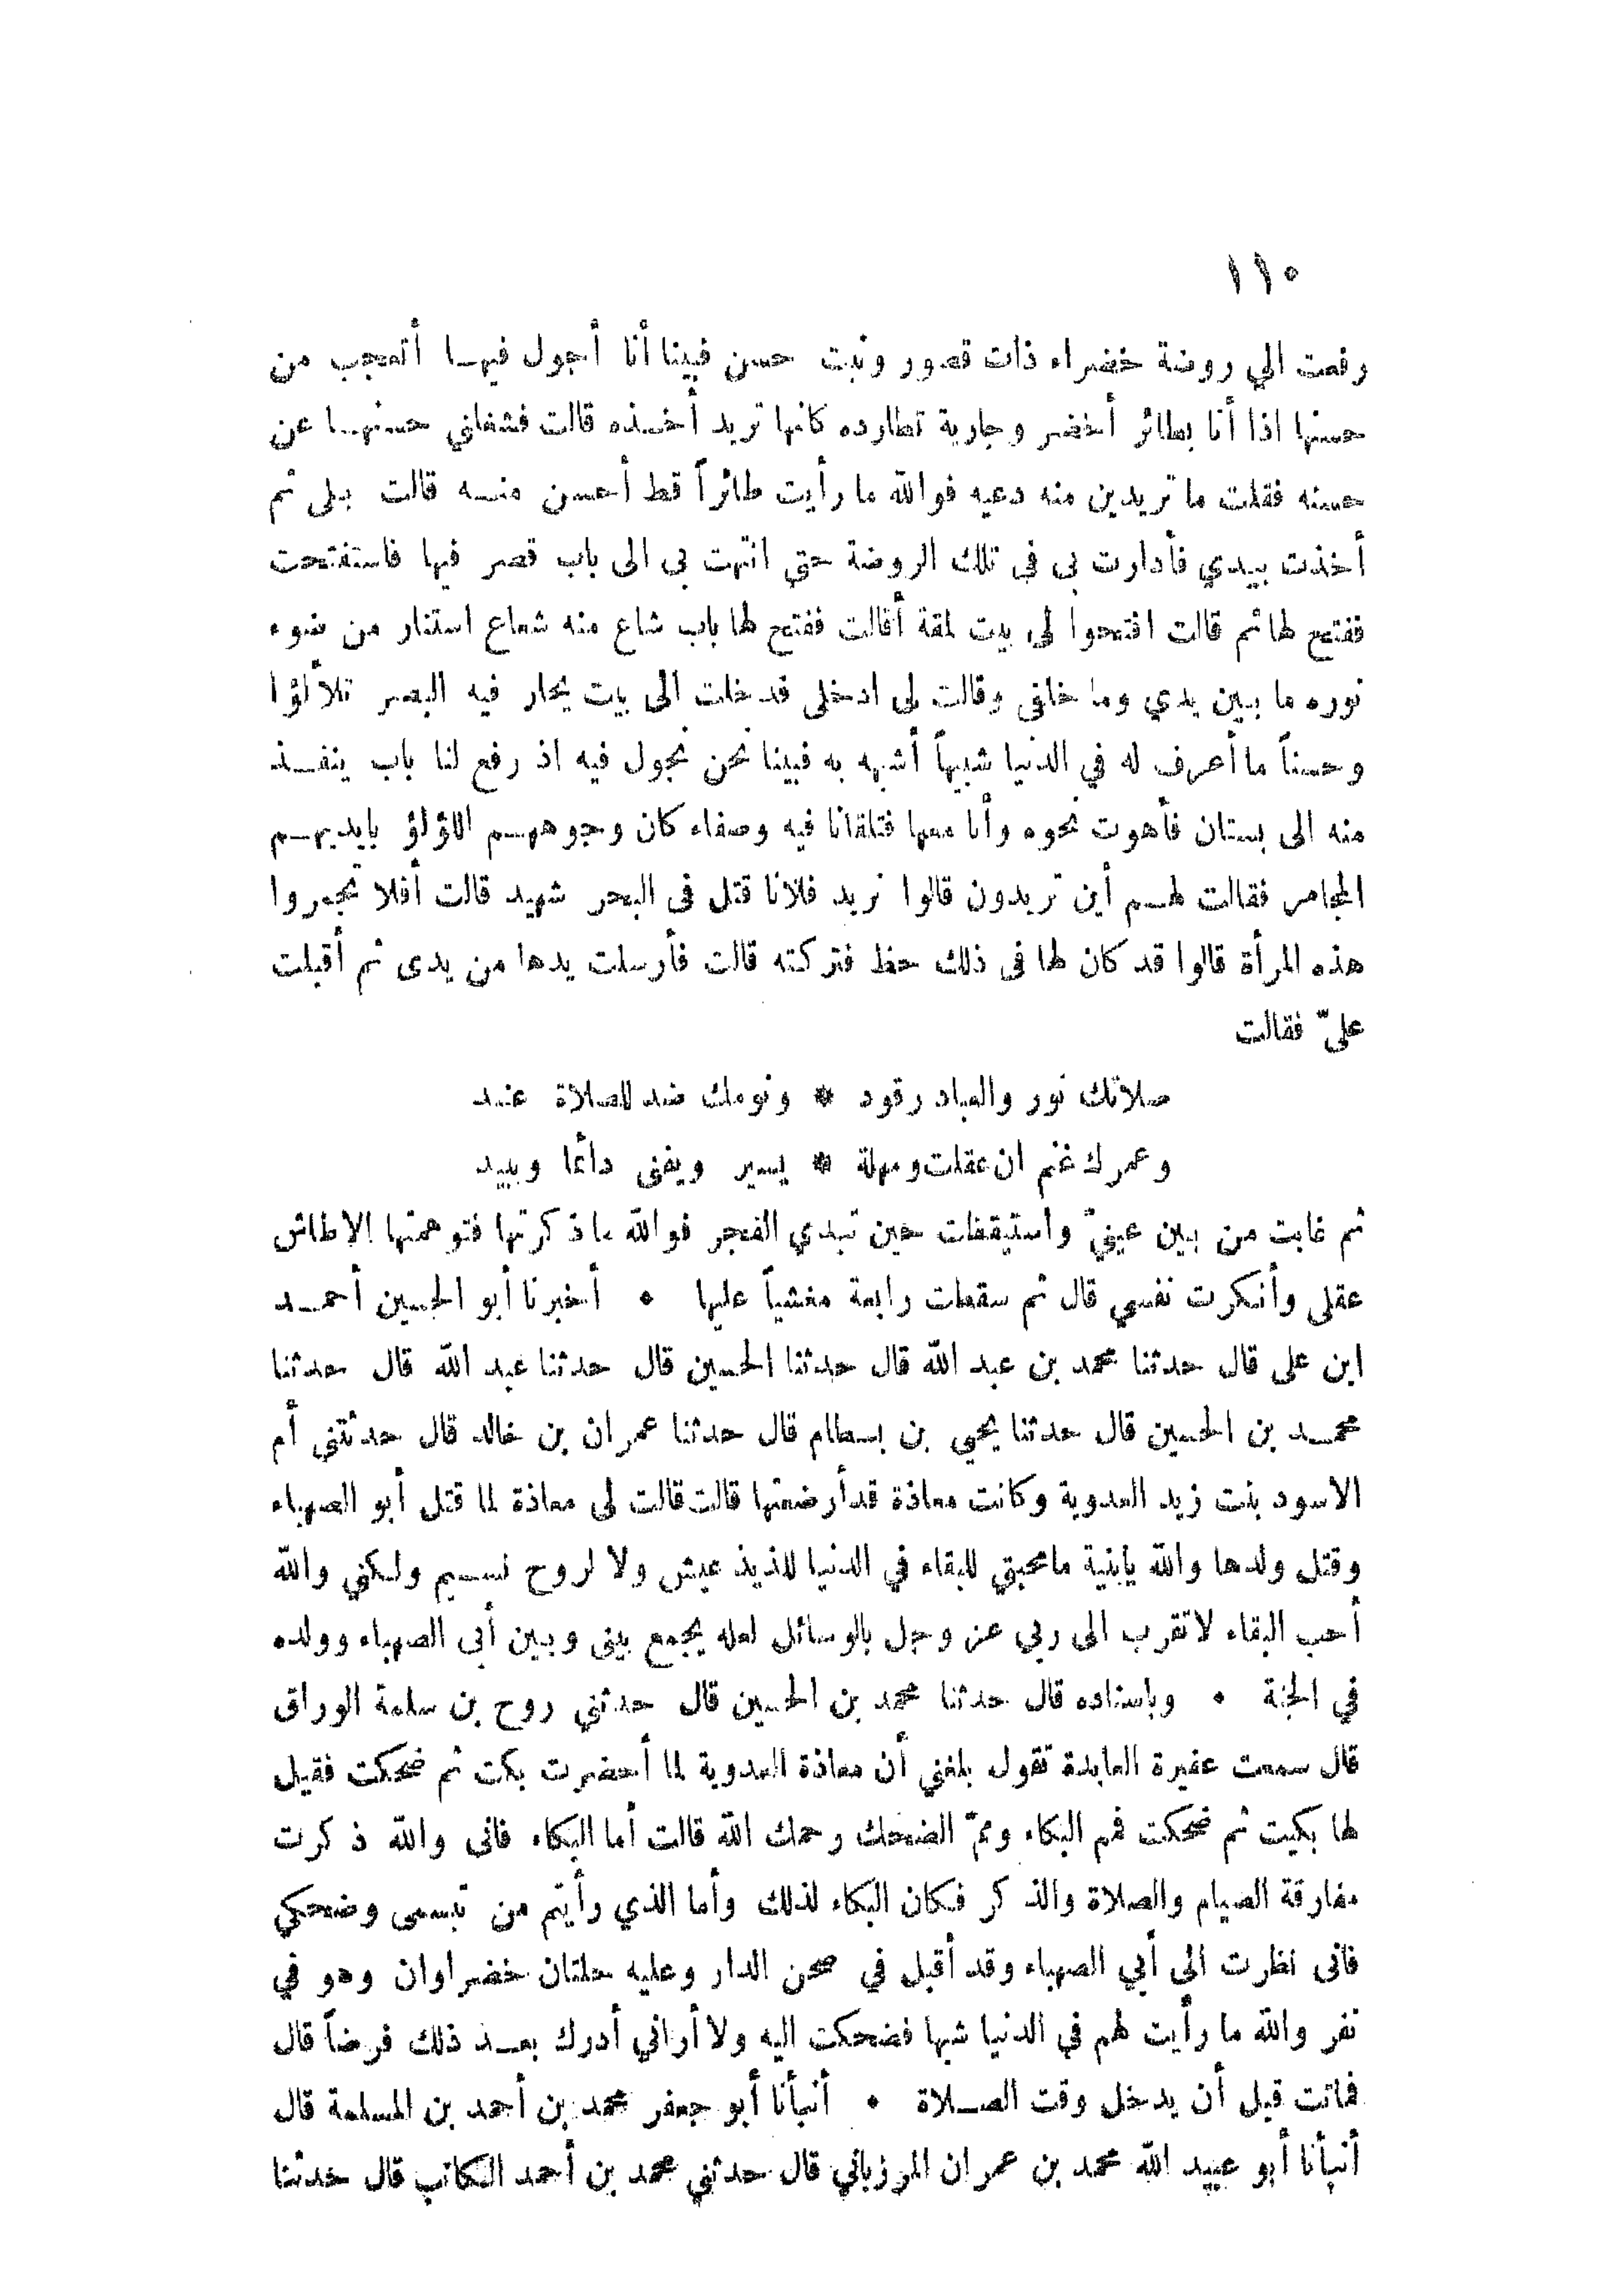 ١١٠
رفعت الي روضة خضراء ذات قصور ونبت حسن فبينا أنا أجول فيها أتعجب من
حسنها اذا أنا بطائر أخضر وجارية تطارده كانها تريد أخذه قالت فشغلني حسنها عن
حسنه فقلت ما تريدين منه دعيه فوالله ما رأيت طائراً قط أحسن منه قالت بلى ثم
أخذت بيدي فأدارت بى فى تلك الروضة حتى انتهت بى الى باب قصر فيها فاستفتحت
ففتح لها ثم قالت افتحوا لى بيت لمقة أقالت ففتح لها باب شاع منه شعاع استنار من ضوء
نوره ما بين يدي وما خلفى وقالت لى ادخلى فدخلت الى بيت يحار فيه البصر تلألؤا
وحسناً ما أعرف له في الدنيا شبيهاً أشبهه به فبينا نحن نجول فيه اذ رفع لنا باب ينفذ
منه الى بستان فأهوت نحوه وأنا معها فتلقانا فيه وصفاء كان وجوههم اللؤلؤ بايديهم
المجامر فقالت لهم أين تريدون قالوا نريد فلانا قتل فى البحر شهيد قالت أفلا تجمروا
هذه المرأة قالوا قد كان لها فى ذلك حظ فتركته قالت فأرسلت يدها من يدى ثم أقبلت
علىّ فقالت
صلاتك نور والعباد رقود * ونومك ضد للصلاة عند
وعمرك غنم ان عقلت ومهلة * يسير ويفنى دائما ويبيد
ثم غابت من بين عينيّ واستيقظت حين تبدي الفجر فوالله ما ذكرتها فتوهمتها الا طاش
عقلى وأنكرت نفسي قال ثم سقطت رابعة مغشياً عليها • أخبرنا أبو الحسين أحمد
ابن على قال حدثنا محمد بن عبد الله قال حدثنا الحسين قال حدثنا عبد الله قال حدثنا
محمد بن الحسين قال حدثنا يحيي بن بسطام قال حدثنا عمران بن خالد قال حدثتنى أم
الاسود بنت زيد العدوية وكانت معاذة قد أرضعتها قالت قالت لى معاذة لما قتل أبو الصهباء
وقتل ولدها والله يابنية ما محبتي للبقاء في الدنيا للذيذ عيش ولا لروح نسيم ولكني والله
أحب البقاء لاتقرب الى ربي عز وجل بالوسائل لعله يجمع بينى وبين أبى الصهباء وولده
في الجنة • وباسناده قال حدثنا محمد بن الحسين قال حدثني روح بن سلمة الوراق
قال سمعت عفيرة العابدة تقول بلغني أن معاذة العدوية لما أحضرت بكت ثم ضحكت فقيل
لها بكيت ثم ضحكت فمم البكاء وممّ الضحك رحمك الله قالت أما البكاء فانى والله ذكرت
مفارقة الصيام والصلاة والذكر فكان البكاء لذلك وأما الذي رأيتم من تبسمى وضحكي
فانى نظرت الى أبي الصهباء وقد أقبل في صحن الدار وعليه حلتان خضراوان وهو في
نفر والله ما رأيت لهم في الدنيا شبها فضحكت اليه ولا أراني أدرك بعد ذلك فرضاً قال
فماتت قبل أن يدخل وقت الصلاة • أنبأنا أبو جعفر محمد بن أحمد بن المسلمة قال
أنبأنا أبو عبيد الله محمد بن عمران المرزباني قال حدثني محمد بن أحمد الكاتب قال حدثنا